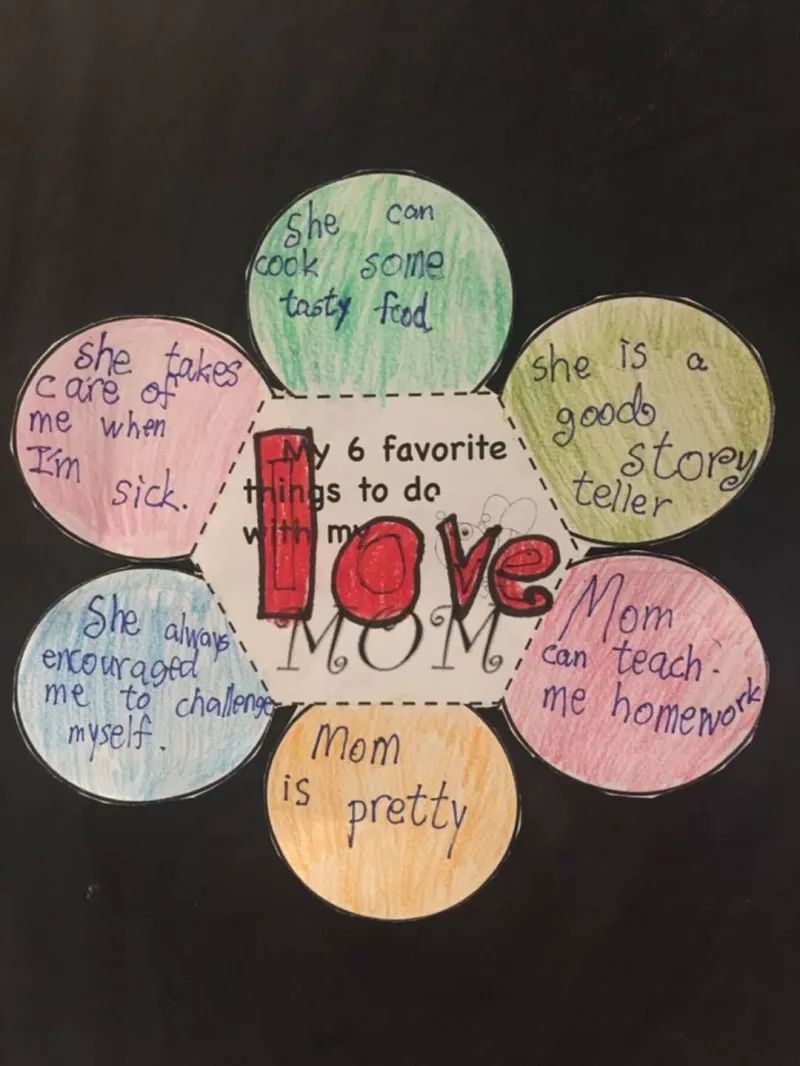 she can
cook some
tasty food
she is a
good
story
teller
Mom
can teach
me homework
Mom
is pretty
She always
encouraged
me to challenge
myself.
she takes
care of
me when
I'm
sick.
My 6 favorite
things to do
with my
love
MOM